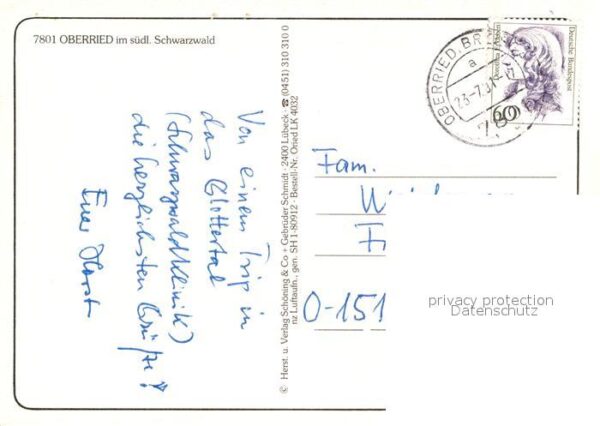 7801 OBERRIED im südl. Schwarzwald
Von einem Trip in
das Glottertal
(Schwarzwaldklinik)
die herzlichsten Grüße!
Euer Horst
© Herst. u. Verlag Schöning & Co + Gebrüder Schmidt · 2400 Lübeck · ☎ (0451) 310 310 0
nz Luftaufn., gen. SH 1-80912 · Bestell-Nr. Oried LK 4032
OBERRIED, BR
a
23-7.91
7801
Deutsche Bundespost
60
Fam.
O-151
privacy protection
Datenschutz